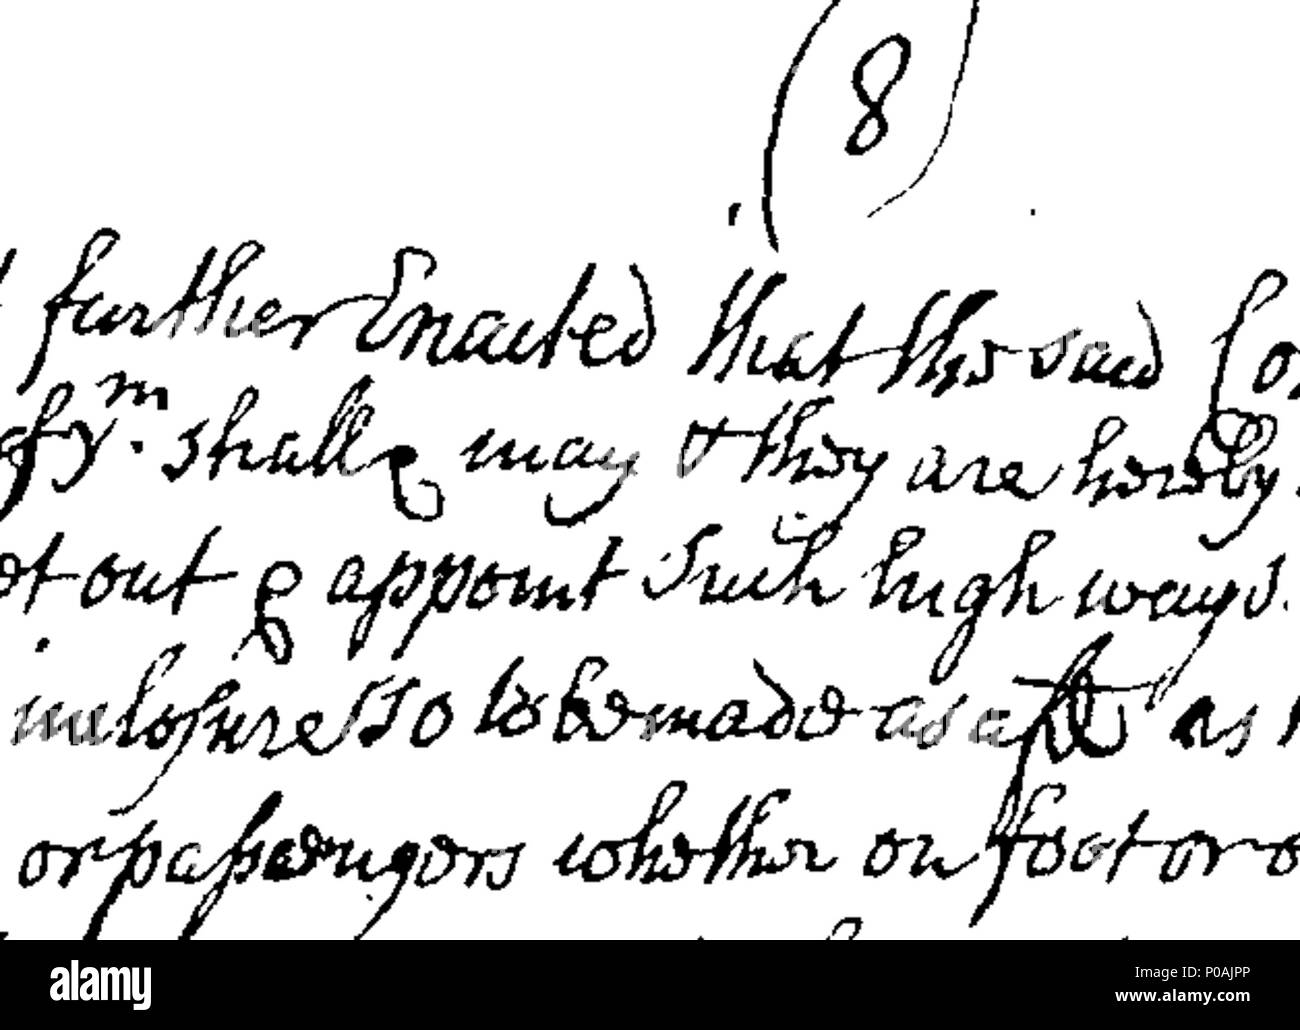 (8)
further Enacted that the said Co
of ym. shall & may & they are hereby
et out & appoint such high ways.
inclosures so to be made as afd as
or passengers whether on foot or o
alamy
alamy
Image ID: P0AJPP
www.alamy.com